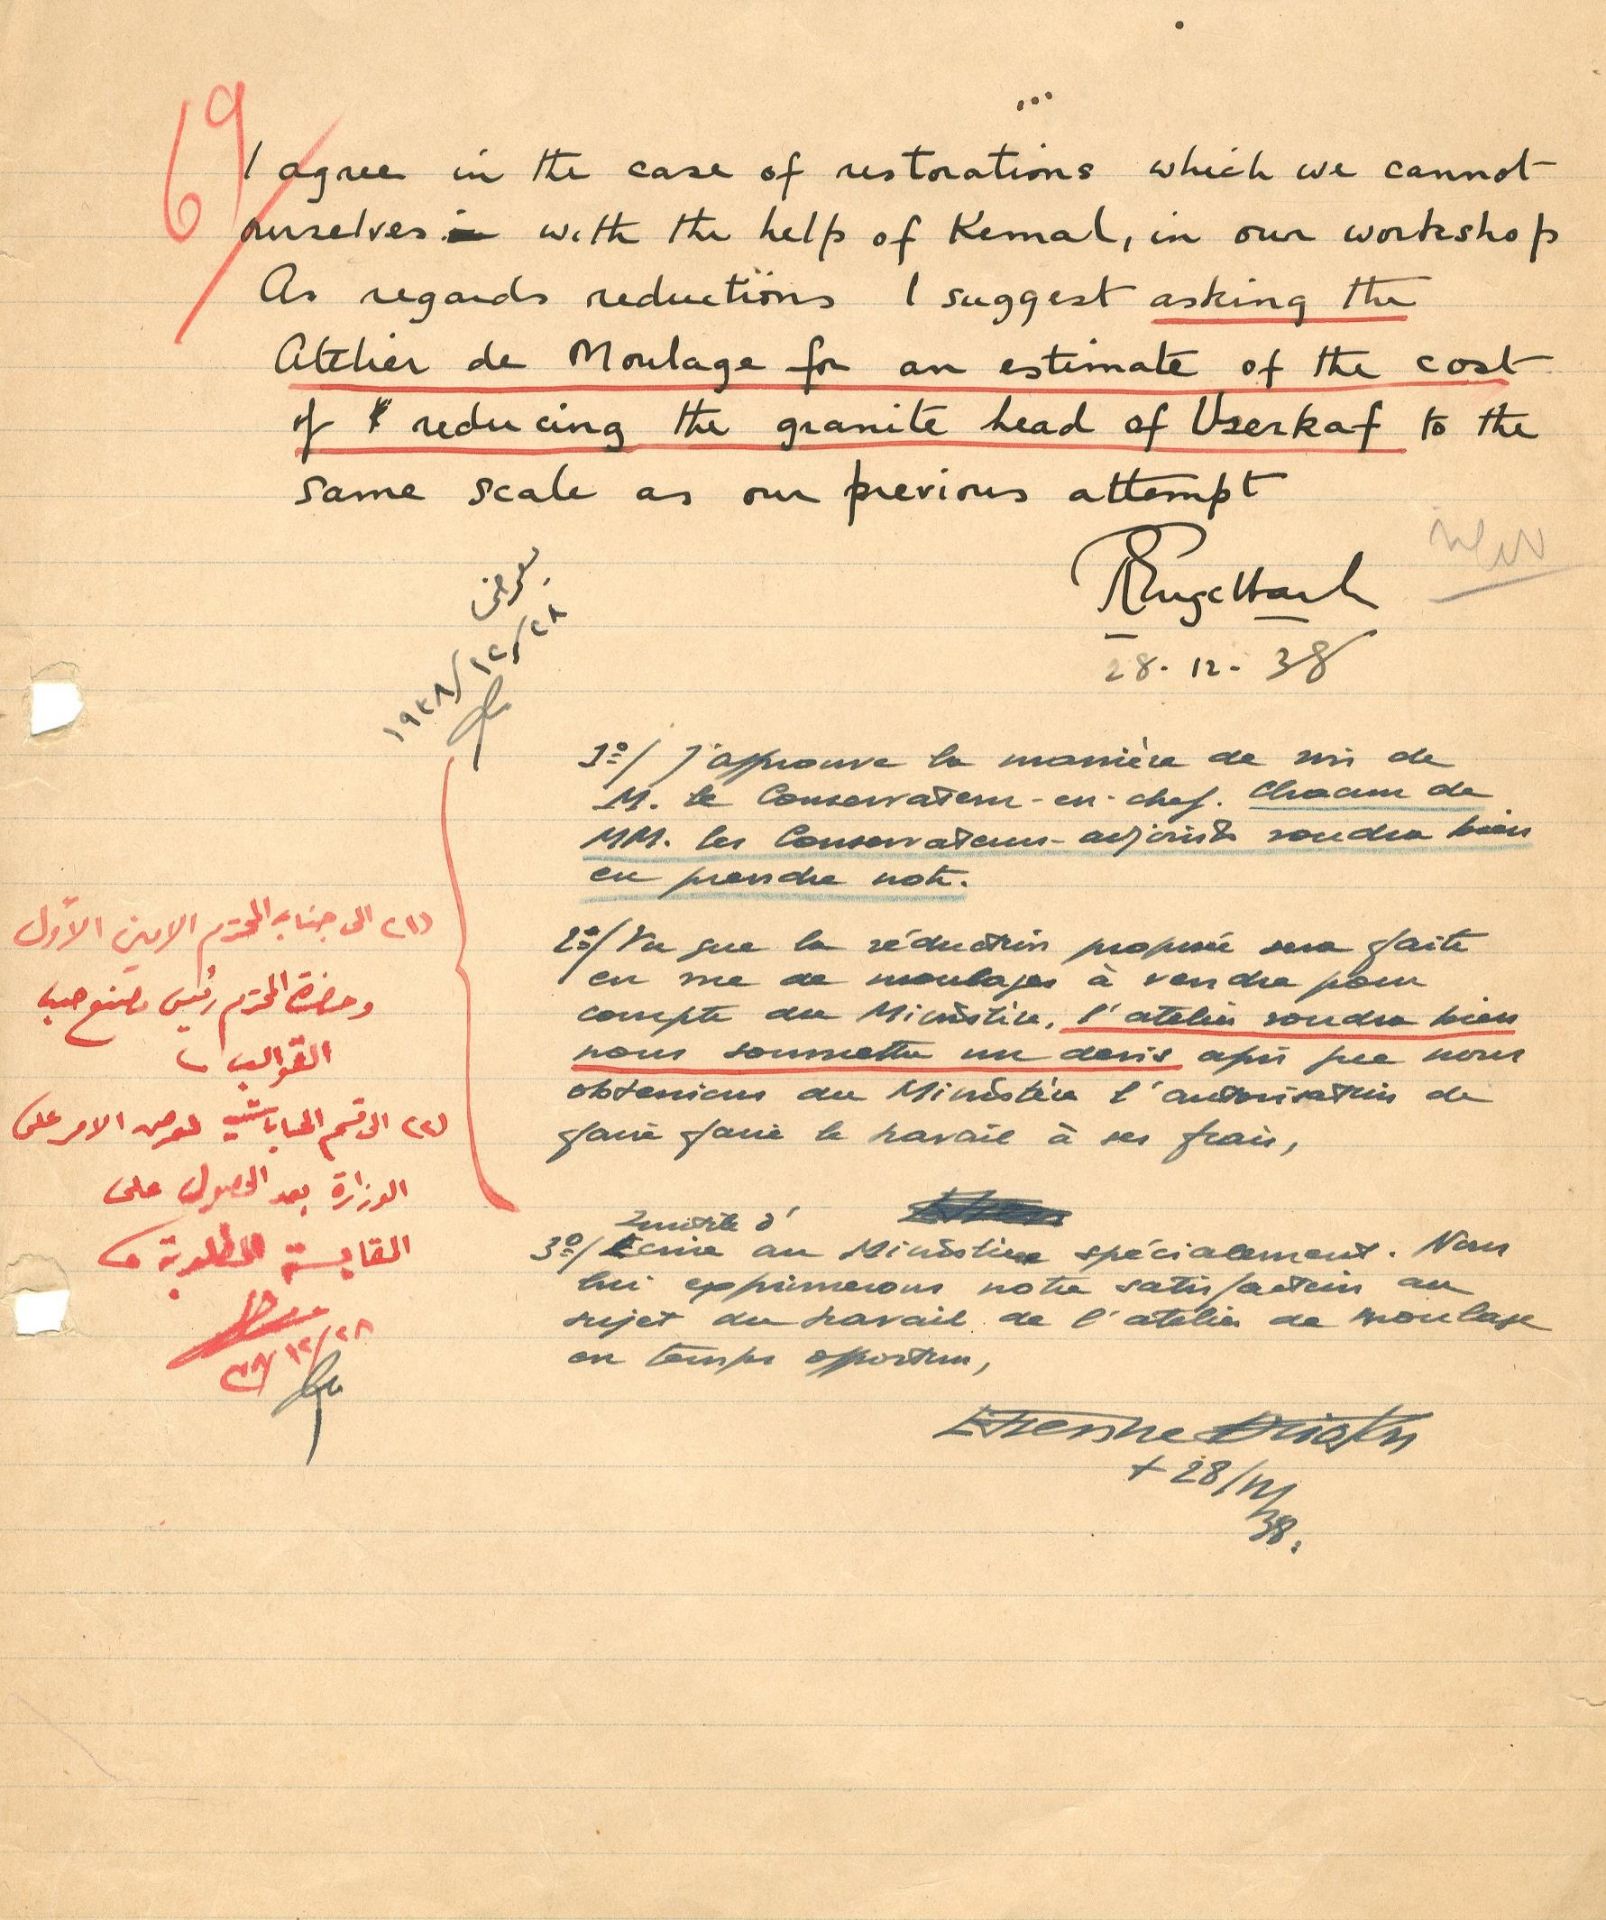 69
I agree in the case of restorations which we cannot
ourselves with the help of Kemal, in our workshop
As regards reductions I suggest asking the
Atelier de Moulage for an estimate of the cost
of reducing the granite head of Userkaf to the
same scale as our previous attempt
R Engelbach
28. 12. 38
١٩٣٨/١٢/٢٨
1º/ J'approuve la manière de voir de
M. le Conservateur-en-chef. Chacun de
MM. les Conservateurs-adjoints voudra bien
en prendre note.
2º/ Vu que la réduction proposée sera faite
en vue de moulages à vendre pour
compte du Ministère, l'atelier voudra bien
nous soumettre un devis afin que nous
obtenions du Ministère l'autorisation de
faire faire le travail à ses frais,
3º/ Inutile d'écrire au Ministère spécialement. Nous
lui exprimerons notre satisfaction au
sujet du travail de l'atelier de moulage
en temps opportun,
Etienne Drioton
28/12/38.
(١) الى جناب المحترم الامين الأول
وحضرة المحترم رئيس مصنع صب
القوالب
(٢) الى قسم الحسابات لعرض الامر على
الوزارة بعد الحصول على
المقايسة المطلوبة
٣٨/١٢/٢٨